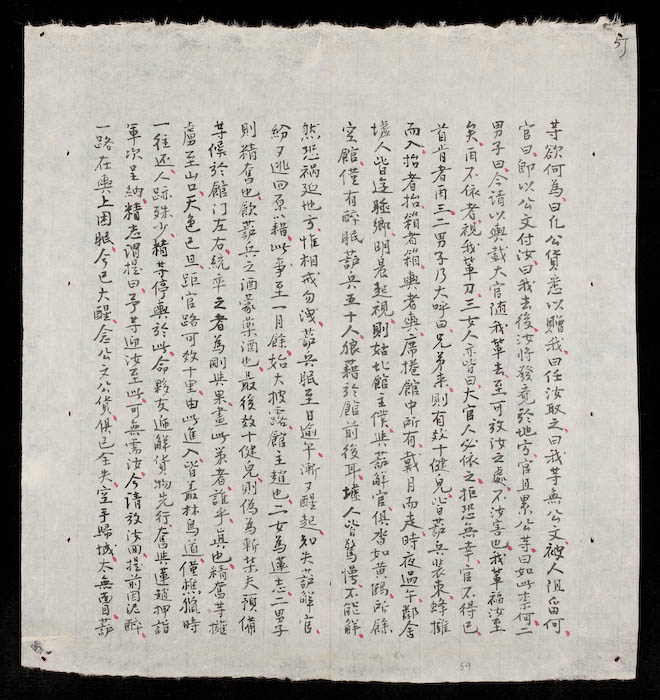 51
等欲何為曰凢公貨悉以贈我曰任汝取之曰我等無公文被人阻畄何
官曰即以公文付汝曰我去後汝將發覺於地方官且累公等曰如此柰何二
男子曰今請以輿載大官随我軰去至一可放汝之處不汝害也我軰福汝至
矣再不依者視我軰刀二女人亦皆曰大官人必依之拒恐無幸官不得已
首肯者再三二男子乃大呼曰兄弟来則有数十健兒皆葫兵装束蜂擁
而入抬者抬箱者箱輿者輿席捲館中所有戴月而走時夜過午鄰舍
墟人皆逢睡鄉明晨起視則姑館主僕與葫解官俱杳如黄鶴所餘
空館僅有醉眠葫兵五十人狼藉於館前後耳墟人皆驚愕不能解
然恐禍延地方惟相戒勿洩葫兵眠至日逾午漸乃醒起知失葫解官
紛乃逃回原籍此事至一月餘始大披露館主趙也二女為蓮志二男子
則精奮也飲葫兵之酒蒙藥酒也最後数十健兒則偽為斬柴夫預備
等候於館门左右統率之者為剛與果畫此策者誰乎也精奮等擁
虜至山口天色已旦距官路可数十里由此進入皆叢林鳥道僅樵獵時
一往还人跡殊少精等停輿於此命夥友逓解貨物先行奮與蓮趙押詣
軍次呈納精志謂提曰予等迎汝至此可無需汝今請放汝回提前因泥醉
一路在輿上困眠今已大醒念公文公貨俱已全失空手歸城太無面目葫
59